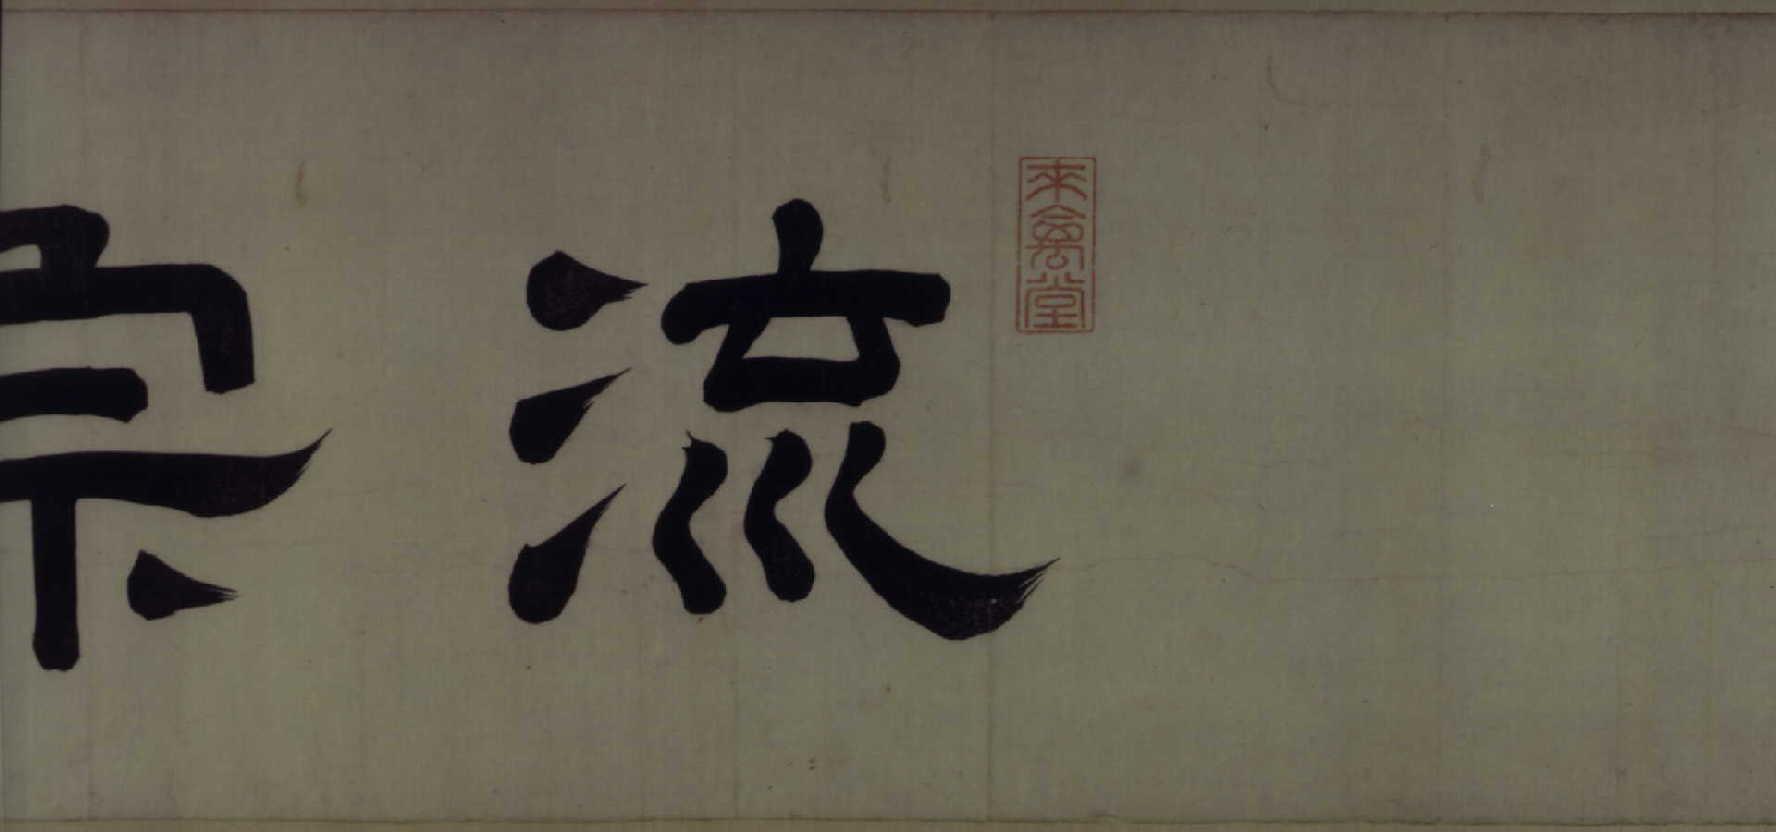 來禽堂
流宗